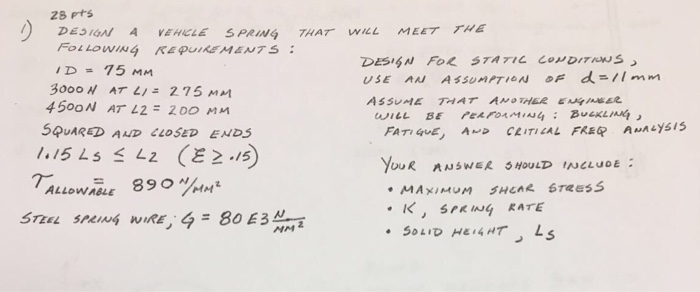 28 pts
1) DESIGN A VEHICLE SPRING THAT WILL MEET THE
FOLLOWING REQUIREMENTS :
ID = 75 MM
3000 N AT L1 = 275 MM
4500N AT L2 = 200 MM
SQUARED AND CLOSED ENDS
1.15 LS ≤ L2 (ξ ≥ .15)
τ ALLOWABLE = 890 N/MM²
STEEL SPRING WIRE; G = 80 E3 N/MM²
DESIGN FOR STATIC CONDITIONS,
USE AN ASSUMPTION OF d = 11mm
ASSUME THAT ANOTHER ENGINEER
WILL BE PERFORMING : BUCKLING,
FATIGUE, AND CRITICAL FREQ ANALYSIS
YOUR ANSWER SHOULD INCLUDE :
• MAXIMUM SHEAR STRESS
• K, SPRING RATE
• SOLID HEIGHT, LS